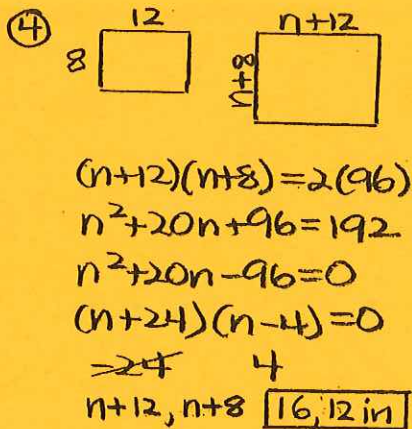 ④
12
8
n+12
n+8
(n+12)(n+8)=2(96)
n²+20n+96=192
n²+20n-96=0
(n+24)(n-4)=0
-24 4
n+12, n+8 16, 12 in